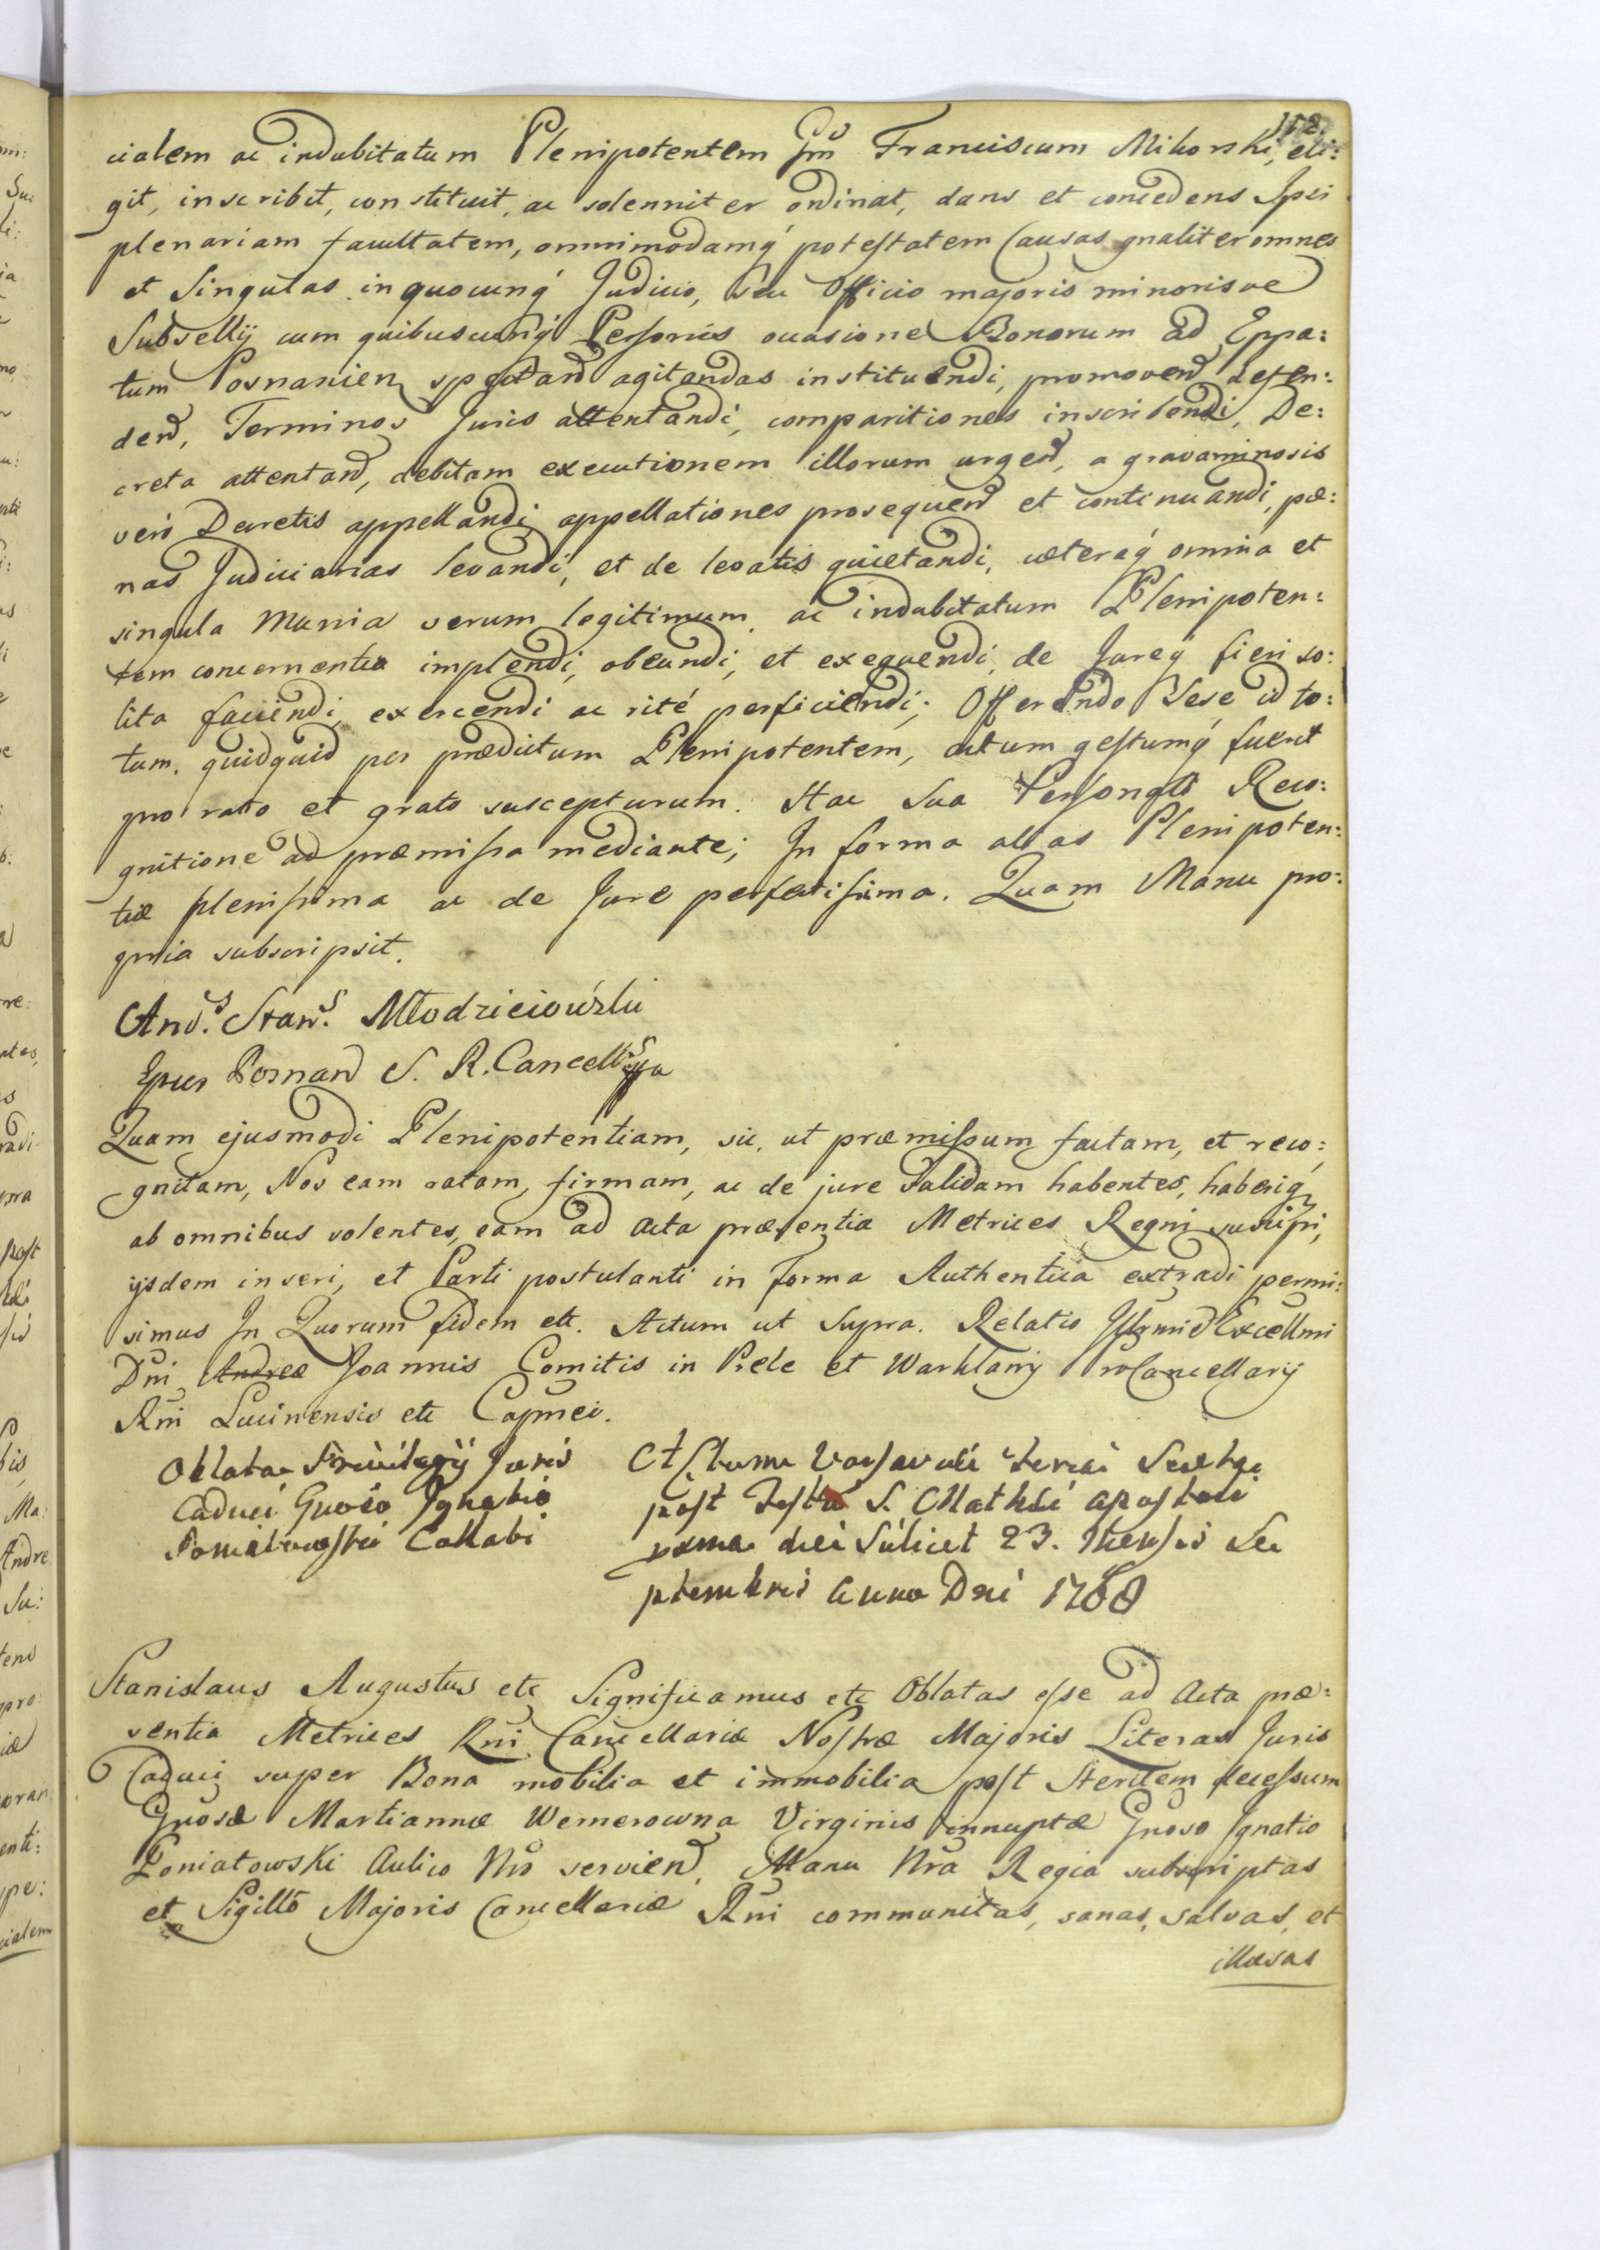 152.
cialem ac indubitatum Plenipotentem Gm̃ Franciscum Mikorski, eli:
git, inscribit, constituit, ac solenniter ordinat, dans et concedens Ipsi
plenariam facultatem, omnimodamq́ potestatem Causas gnaliter omnes
et Singulas in quocunq́ Judicio, seu Officio majoris minorisve
Subsellij cum quibuscunq́ Personis occasione Bonorum ad Eppa:
tum Posnanien spectand agitandas instituendi, promovend defen:
dend, Terminos Juris attentandi, comparitiones inscribendi, De:
creta attentand, debitam executionem illorum urgend, a gravaminosis
vero Decretis appellandi appellationes prosequend et continuandi, pœ:
nas Judiciarias levandi, et de levatis quietandi, cæteraq́ omnia et
singula Munia verum legitimum ac indubitatum Plenipoten:
tem concernentia implendi, obeundi, et exequendi, de Jureq́ fieri so:
lita faciendi, exercendi ac rité perficiendi; Offerendo Sese id to:
tum, quidquid per prædictum Plenipotentem, actum gestumq́ fuerit
pro rato et grato suscepturum. Hac Sua Personali Reco:
gnitione ad præmissa mediante; In forma alias Plenipoten:
tiæ plenissima ac de Jure perfectissima. Quam Manu pro:
pria subscripsit.
And.s Stan.s Młodzieiowski
Epus Posnan S. R. Cancell
Quam ejusmodi Plenipotentiam, sic, ut præmissum factam, et reco:
gnitam, Nos eam ratam, firmam, ac de jure Validam habentes, haberiq
ab omnibus volentes, eam ad Acta præsentia Metrices Regni suscipi,
ijsdem inseri, et Parti postulanti in forma Authentica extradi permi:
simus In Quorum fidem ett. Actum ut Supra. Relatio Illr̃mi Excellmi
Dni Andreæ Joannis Comitis in Prele et Warklany ProCancellarij
Rñi Lucinensis etc Capnei.
Oblata Privilegij Juris
Caduci Gnoso Ignatio
Poniatowski Collati
Actum Varsaviæ feria Sexta
post Festũ S. Mathæi Apostoli
proxima die Scilicet 23. Mensis Se
ptembris Anno Dni 1768
Stanislaus Augustus etc Significamus etc Oblatas esse ad Acta præ:
sentia Metrices Rñi Cancellariæ Nostræ Majoris Literas Juris
Caduci super Bona mobilia et immobilia post Sterilem decessum
Gnosæ Martiannæ Wernerowna Virginis innuptæ Gnoso Ignatio
Poniatowski Aulico Nro serviend, Manu Nra Regia subscriptas
et Sigillo Majoris Cancellariæ Rñi communitas, sanas, salvas, et
illæsas